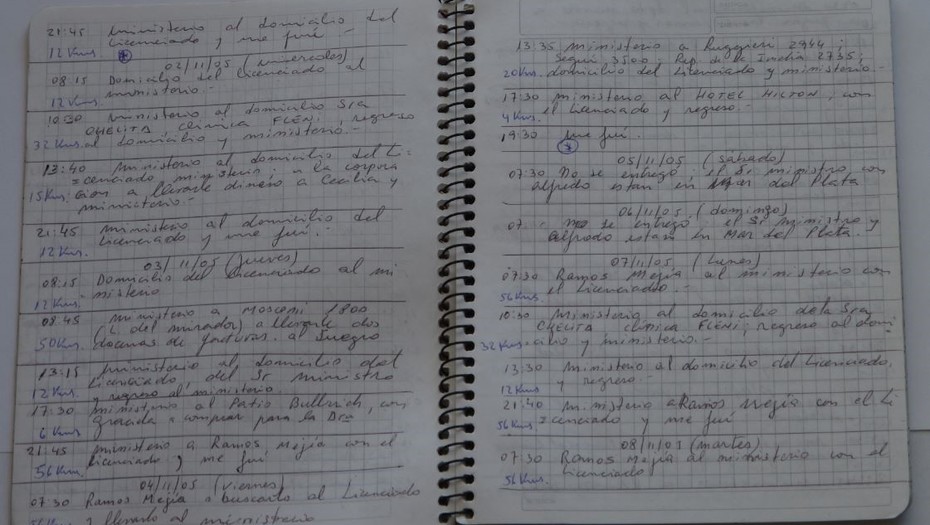 21:45 ministerio al domicilio del
12 Kms. Licenciado y me fuí.-
02/11/05 (miercoles)
08:15 Domicilio del Licenciado al
12 Kms. ministerio.-
10:30 ministerio al domicilio Sra
CHELITA, clinica FLENI, regreso
32 Kms. al domicilio y ministerio.-
13:40 Ministerio al domicilio del Li=
=cenciado ministerio; a la corpora
15 Kms. cion a llevarle dinero a Cecilia y
ministerio.-
21:45 ministerio al domicilio del
Licenciado y me fuí.-
12 Kms.
03/11/05 (jueves)
08:15 Domicilio del Licenciado al mi
12 Kms. =nisterio
08:45 ministerio a MOSCONI 1800
(L. del mirador) a llevarle dos
50 Kms. docenas de facturas. al Suegro
13:15 ministerio al domicilio del
Licenciado, del Sr ministro
12 Kms. y regreso al ministerio
17:30 ministerio al Patio Bullrich, con
6 Kms. a comprar para la Dra
21:45 ministerio a Ramos Mejía con el
56 Kms. Licenciado y me fuí
04/11/05 (viernes)
07:30 Ramos Mejía a buscarlo al Licenciado
56 Kms y llevarlo al ministerio
13:35 ministerio a Ruggieri 2944;
Segui 3500; Rep. de la India 2735;
20 Kms. domicilio del Licenciado y ministerio.-
17:30 ministerio al HOTEL HILTON, con
4 Kms. el Licenciado y regreso.-
19:30 me fuí.
05/11/05 (sabado)
07:30 No se entregó; el Sr ministro con
alfredo estan en mar del Plata
06/11/05 (domingo)
07:- No se entregó el Sr Ministro y
alfredo estan en Mar del Plata.
07/11/05 (lunes)
07:30 Ramos Mejía al ministerio con
56 Kms. el Licenciado.-
10:30 Ministerio al domicilio de la Sra
CHELITA, clinica FLENI; regreso al domi
32 Kms. =cilio y ministerio.-
13:30 Ministerio al domicilio del Licenciado,
12 Kms y regreso.
21:40 ministerio a Ramos Mejía con el Li
56 Kms. =cenciado y me fuí
08/11/05 (martes)
07:30 Ramos Mejía al ministerio con el
56 Kms. Licenciado